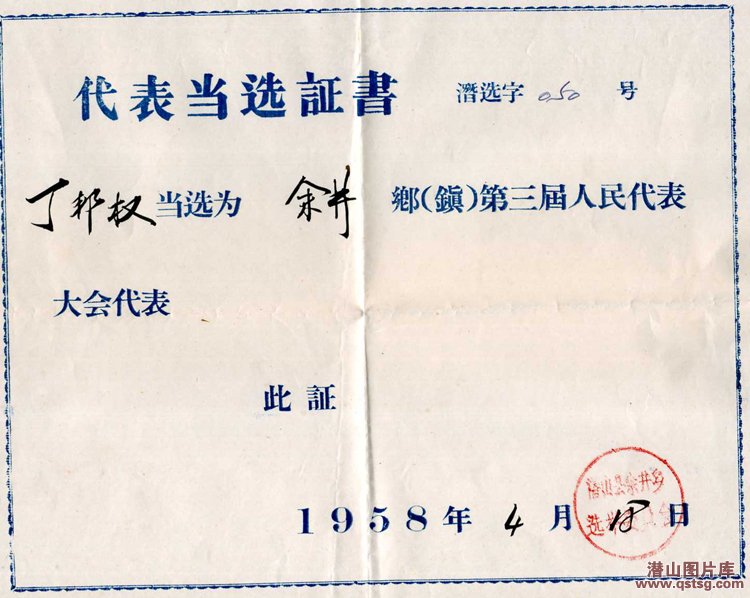 代表当选証書 潛选字 050 号
丁邦权当选为 余井 鄉(鎭)第三屆人民代表
大会代表
此証
潛山县余井乡
选举委員会
1958年 4 月 18 日
潜山图片库
www.qstsg.com